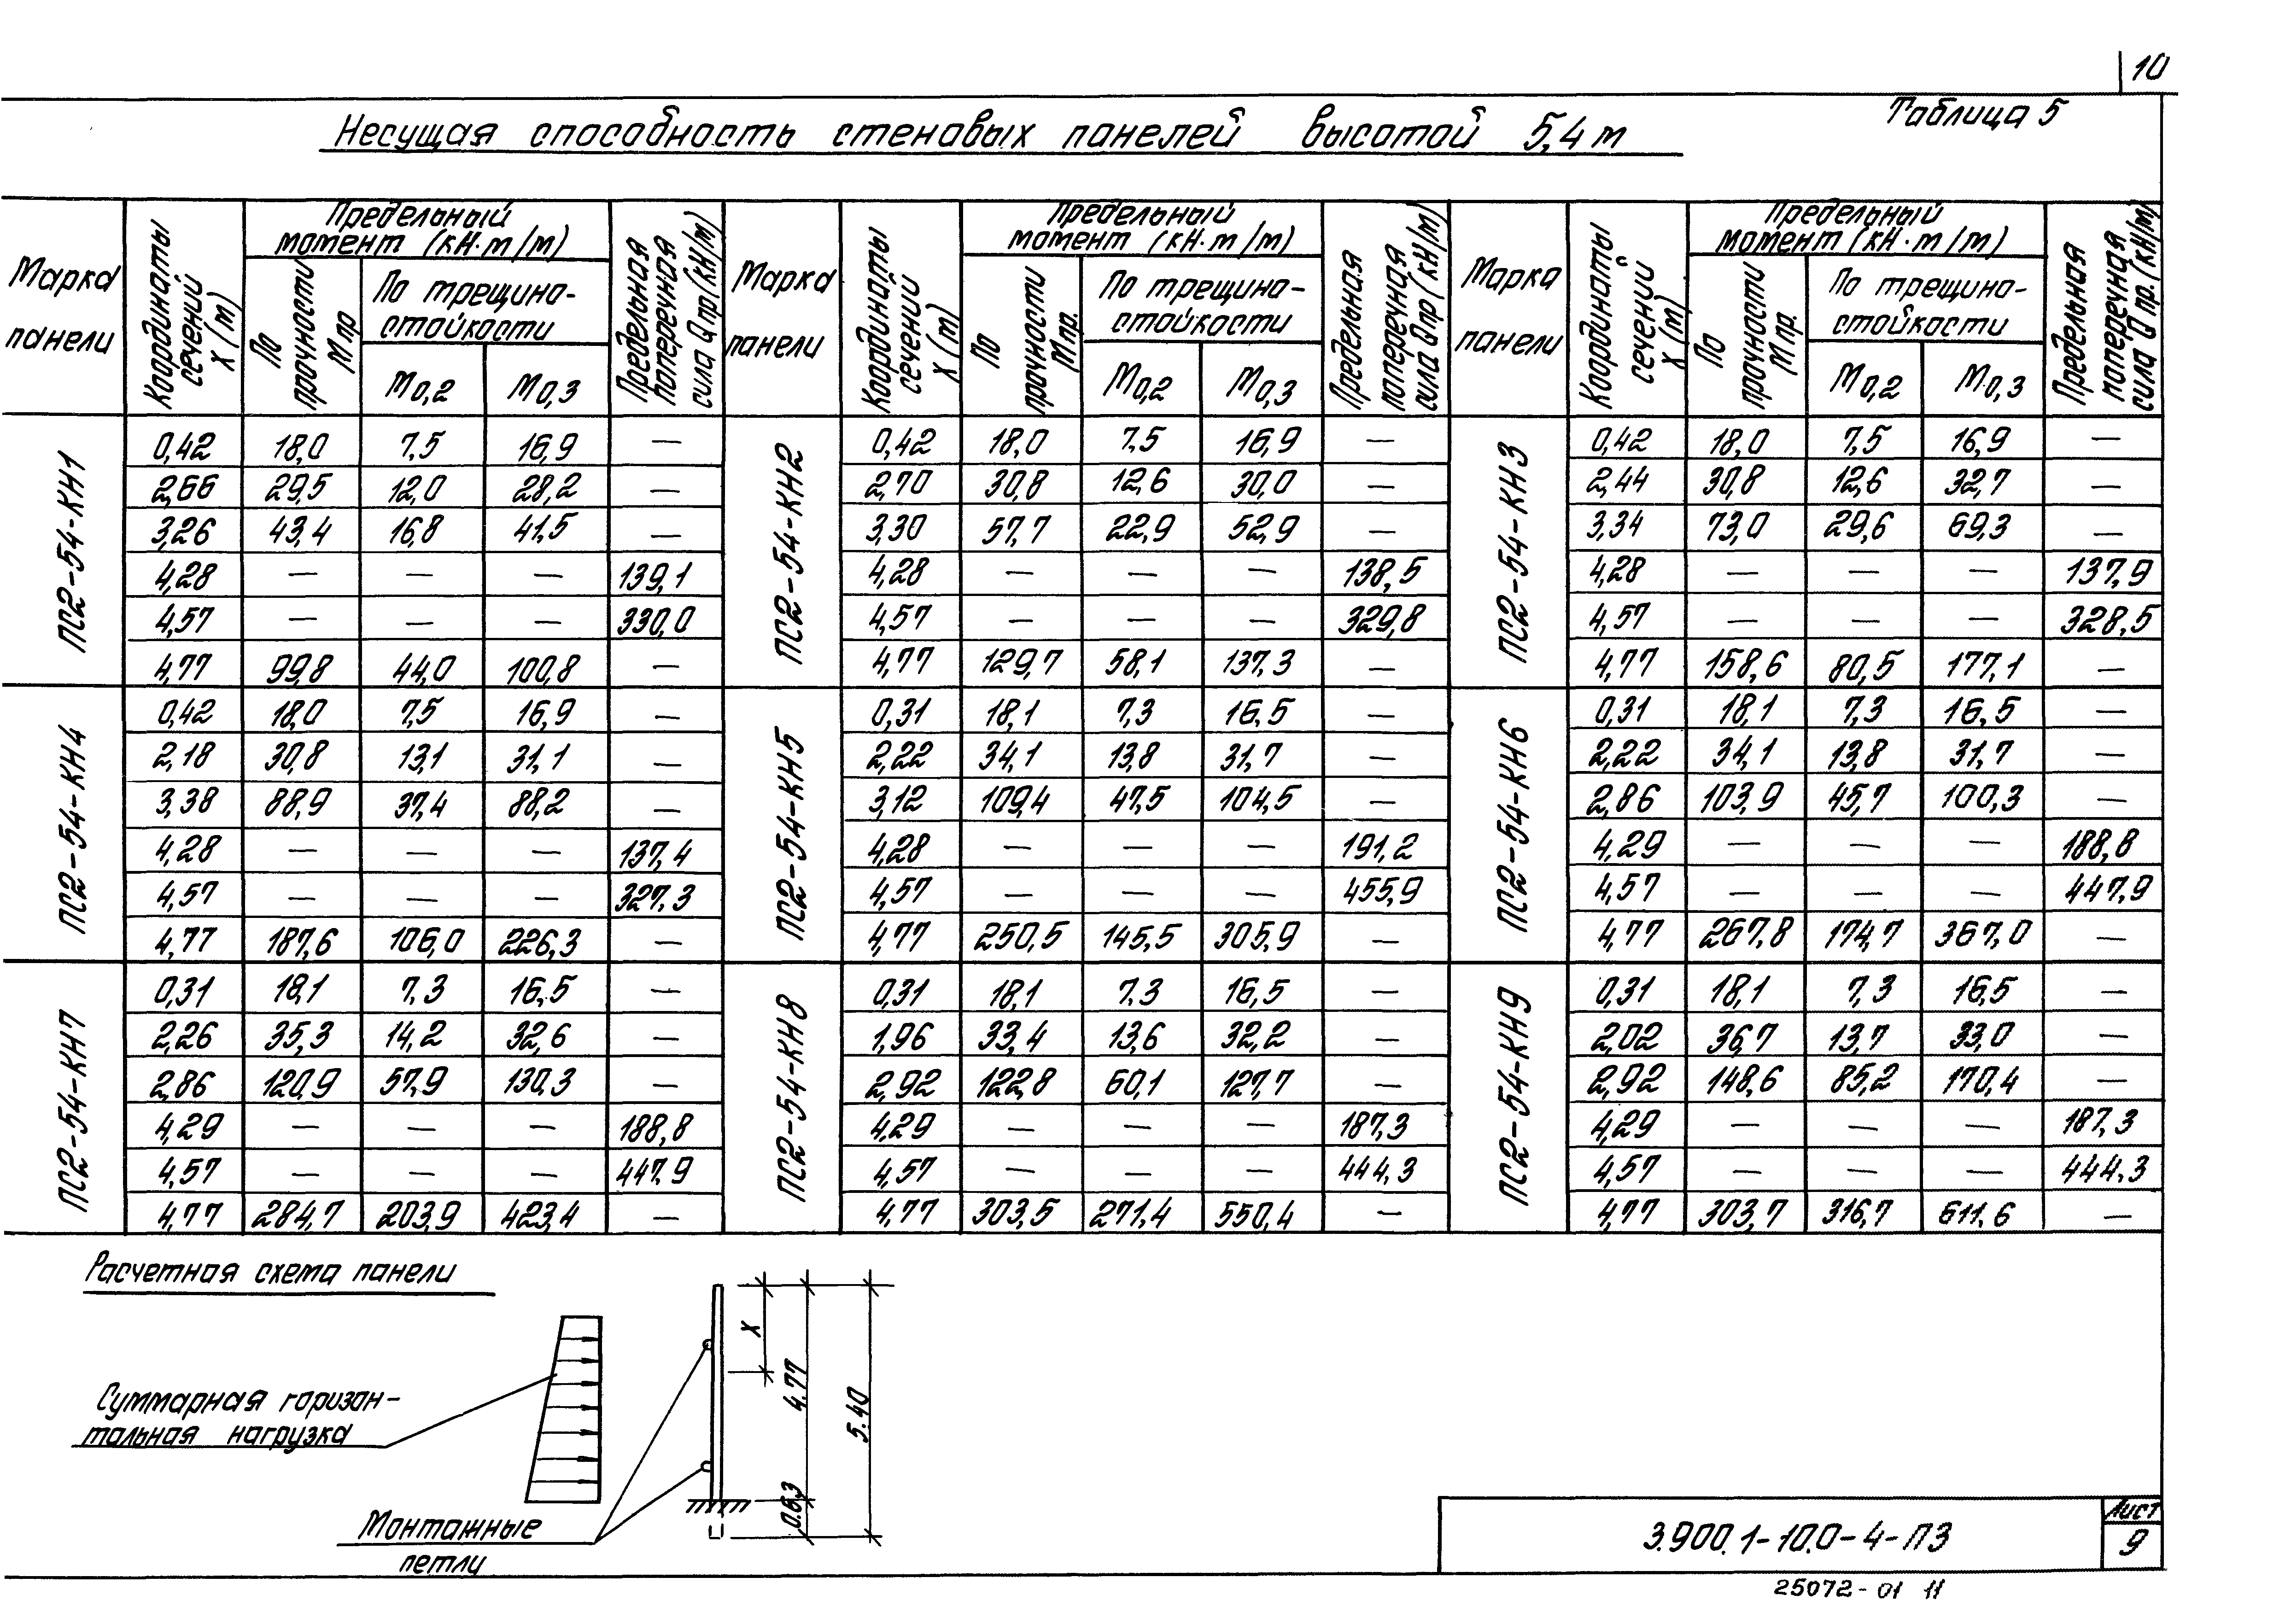 10
Таблица 5
Несущая способность стеновых панелей высотой 5,4 м
Марка панели | Координаты сечений X (м) | Предельный момент (кН·м/м) | Предельная поперечная сила Qпр (кН/м) | Марка панели | Координаты сечений X (м) | Предельный момент (кН·м/м) | Предельная поперечная сила Qпр (кН/м) | Марка панели | Координаты сечений X (м) | Предельный момент (кН·м/м) | Предельная поперечная сила Qпр. (кН/м)
По прочности Мпр | По трещино-стойкости | По прочности Мпр. | По трещино-стойкости | По прочности Мпр. | По трещино-стойкости
М0,2 | М0,3 | М0,2 | М0,3 | М0,2 | М0,3
ПС2-54-КН1
0,42 18,0 7,5 16,9 —
2,66 29,5 12,0 28,2 —
3,26 43,4 16,8 41,5 —
4,28 — — — 139,1
4,57 — — — 330,0
4,77 99,8 44,0 100,8 —
ПС2-54-КН2
0,42 18,0 7,5 16,9 —
2,70 30,8 12,6 30,0 —
3,30 57,7 22,9 52,9 —
4,28 — — — 138,5
4,57 — — — 329,8
4,77 129,7 58,1 137,3 —
ПС2-54-КН3
0,42 18,0 7,5 16,9 —
2,44 30,8 12,6 32,7 —
3,34 73,0 29,6 69,3 —
4,28 — — — 137,9
4,57 — — — 328,5
4,77 158,6 80,5 177,1 —
ПС2-54-КН4
0,42 18,0 7,5 16,9 —
2,18 30,8 13,1 31,1 —
3,38 88,9 37,4 88,2 —
4,28 — — — 137,4
4,57 — — — 327,3
4,77 187,6 106,0 226,3 —
ПС2-54-КН5
0,31 18,1 7,3 16,5 —
2,22 34,1 13,8 31,7 —
3,12 109,4 47,5 104,5 —
4,28 — — — 191,2
4,57 — — — 455,9
4,77 250,5 145,5 305,9 —
ПС2-54-КН6
0,31 18,1 7,3 16,5 —
2,22 34,1 13,8 31,7 —
2,86 103,9 45,7 100,3 —
4,29 — — — 188,8
4,57 — — — 447,9
4,77 267,8 174,7 367,0 —
ПС2-54-КН7
0,31 18,1 7,3 16,5 —
2,26 35,3 14,2 32,6 —
2,86 120,9 57,9 130,3 —
4,29 — — — 188,8
4,57 — — — 447,9
4,77 284,7 203,9 423,4 —
ПС2-54-КН8
0,31 18,1 7,3 16,5 —
1,96 33,4 13,6 32,2 —
2,92 122,8 60,1 127,7 —
4,29 — — — 187,3
4,57 — — — 444,3
4,77 303,5 271,4 550,4 —
ПС2-54-КН9
0,31 18,1 7,3 16,5 —
2,02 36,7 13,7 33,0 —
2,92 148,6 85,2 170,4 —
4,29 — — — 187,3
4,57 — — — 444,3
4,77 303,7 316,7 611,6 —
Расчетная схема панели
Суммарная горизон-
тальная нагрузка
Монтажные
петли
X
4.77
0.63
5.40
3.900.1-10.0-4-ПЗ
Лист
9
25072-01 11